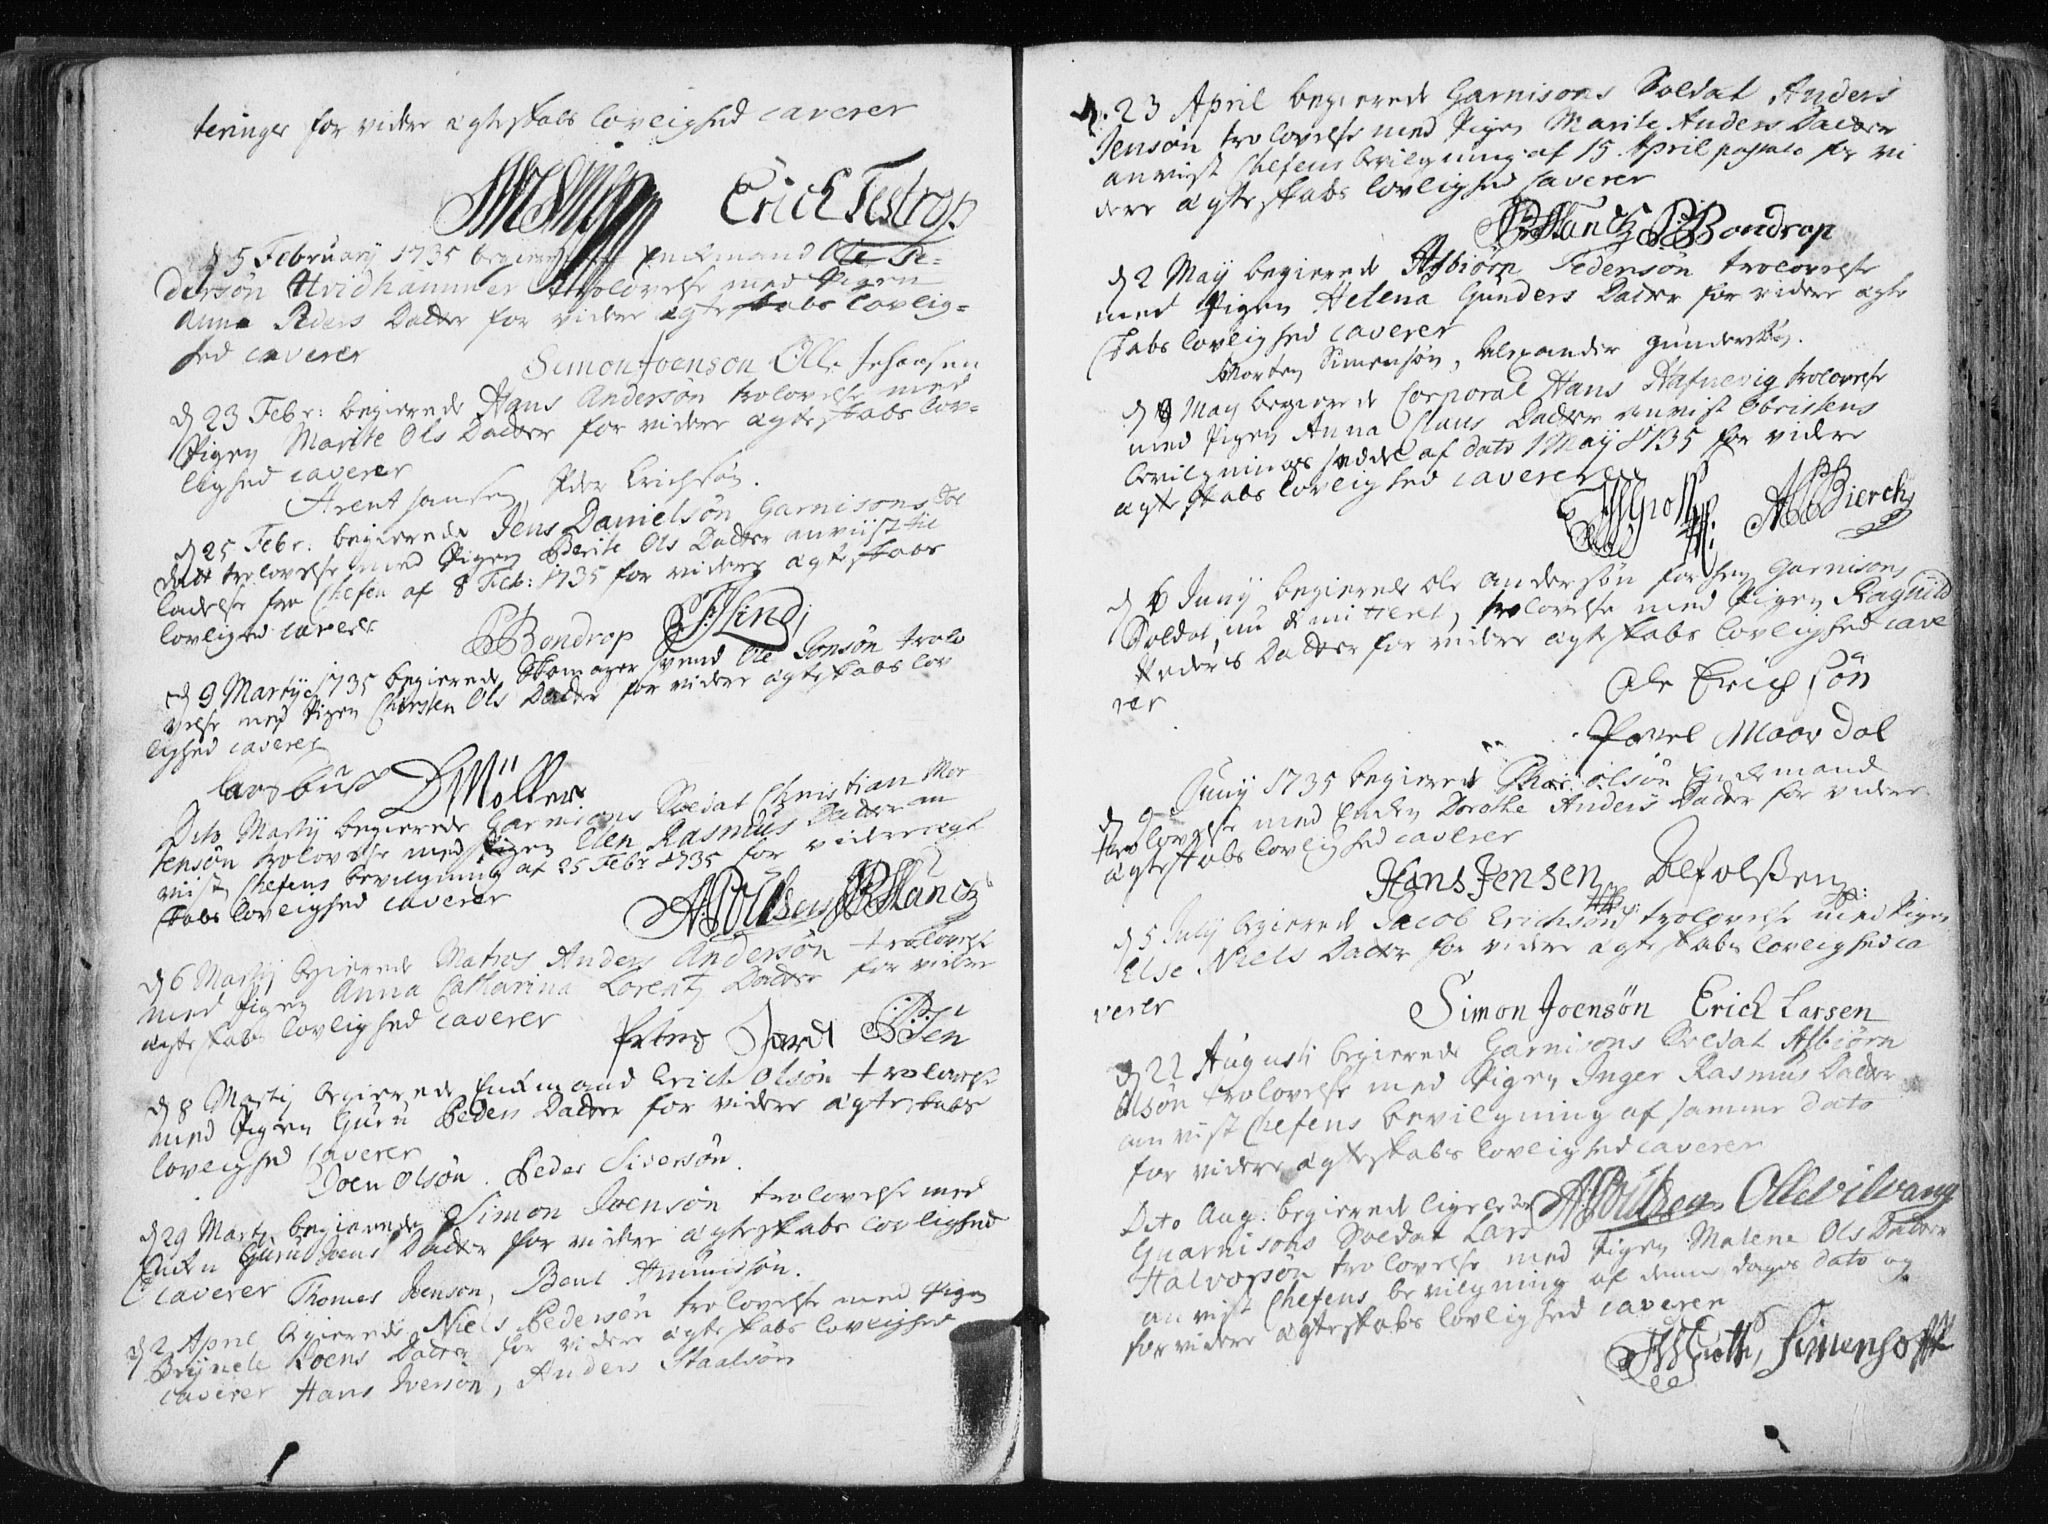 teringer for videre ægteskabs lovlighed caverer
Erich Testrop
d 5 February 1735 begierede Enckemand Ole Pe-
dersøn Hvidhammer trolovelse med Pigen
Anna Peders Datter for videre ægteskabs lovlig-
hed caverer
Simon Joenson Olle Johansen
d 23 Febr: begierede Hans Andersøn trolovelse med
Pigen Marite Ols Datter for videre ægteskabs lov-
lighed caverer
Arent Jansen, Peder Erichsøn.
d 25 Febr: begierede Jens Danielsøn Garnisons Sol
dat trolovelse med Pigen Berite Ols Datter anviist til
ladelse fra Chefen af 8 Feb: 1735 for videre ægteskabs
lovlighed caverer
PBondrop
d 9 Martij 1735 begierede Skomager svend Ole Jonsøn trolo
velse med Pigen Chirsten Ols Datter for videre ægteskabs lov
lighed caverer
Lars buch DMöller
Dito Martij begierede Garnisons Soldat Christian Mor
tensøn trolovelse med Pigen Elen Rasmus Datter an
viist Chefens bevilgning af 25 Febr 1735 for videre ægte
skabs lovlighed caverer
d 6 Martij begierede Matros Anders Andersøn trolovelse
med Pigen Anna Catharina Lorentz Datter for videre
ægteskabs lovlighed caverer
d 8 Martij begierede Enckemand Erich Olsøn trolovelse
med Pigen Guru Peders Datter for videre ægteskabs
lovlighed caverer
Joen Olsøn. Peder Siversøn.
d 29 Martij begierede Simon Joensøn trolovelse med
Encken Guru Joens Datter for videre ægteskabs lovlighed
caverer Thomes Joensøn, Bent Ammisøn.
d 2 April begierede Niels Pedersøn trolovelse med Pigen
Brynele Roens Datter for videre ægteskabs lovlighed
caverer Hans Iversøn, Anders Staalsøn
d. 23 April begierede Garnisons Soldat Anders
Jensøn trolovelse med Pigen Marite Anders Datter
anviist Chefens bevilgning af 15. April for vi
dere ægteskabs lovlighed caverer
PBondrop
d 2 May begierede Asbiørn Pedersøn trolovelse
med Pigen Helena Gunders Datter for videre ægte
skabs lovlighed caverer
Morten Simensøn, Alexander Gundersøn.
d 9 May begierede Corporal Hans Hafnevig trolovelse
med Pigen Anna Claus Datter anvist Obristens
bevilgnings seddel af dato 1 May 1735 for videre
ægteskabs lovlighed caverer
Bierch
d 6 Juny begierede Ole Andersøn forhen Garnisons
Soldat, nu dimitteret, trolovelse med Pigen Ragnild
Peders Datter for videre ægteskabs lovlighed cave
rer
Ole Erichsøn
Povel Moordal
d 9 Juny 1735 begierede Olsøn Enckemand
trolovelse med Encken Dorothe Anders Datter for videre
ægteskabs lovlighed caverer
Hans Jensen
d 5 July begierede Jacob Erichsøn trolovelse med Pigen
Else Niels Datter for videre ægteskabs lovlighed ca
verer
Simon Joensøn Erich Larsen
d 22 Augusti begierede Garnisons Soldat Asbiørn
Olsøn trolovelse med Pigen Inger Rasmus Datter
anvist Chefens bevilgning af samme dato
for videre ægteskabs lovlighed caverer
Dito Aug: begierede ligeledes
Guarnisons Soldat Lars
Halvorsøn trolovelse med Pigen Malene Ols Datter
anvist Chefens bevilgning af denne dags dato og
for videre ægteskabs lovlighed caverer